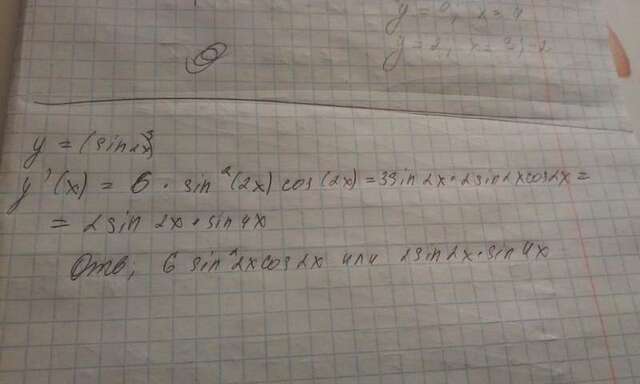 y = 0, x = 4
y = 2,
y = (sin 2x)³
y'(x) = 6 · sin²(2x) cos(2x) = 3 sin 2x · 2 sin 2x cos 2x =
= 2 sin 2x · sin 4x
Отв, 6 sin²2x cos 2x или 2 sin 2x · sin 4x